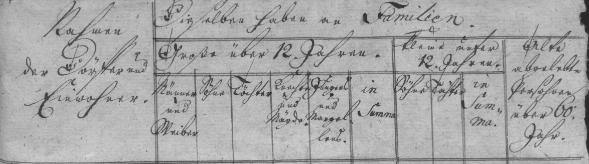 Nahmen
der Dörffer und
Einwohner.
Dieselben haben an Familien.
Große über 12. Jahren.
Kleine unter
12. Jahren.
Alte
abgelebte
Persohnen
über 60.
Jahr.
Männer
und
Weiber
Söhne
Töchter
Knechte
und
Mägde.
und
in
Summa
Söhne
Töchter
in
Sum-
ma.